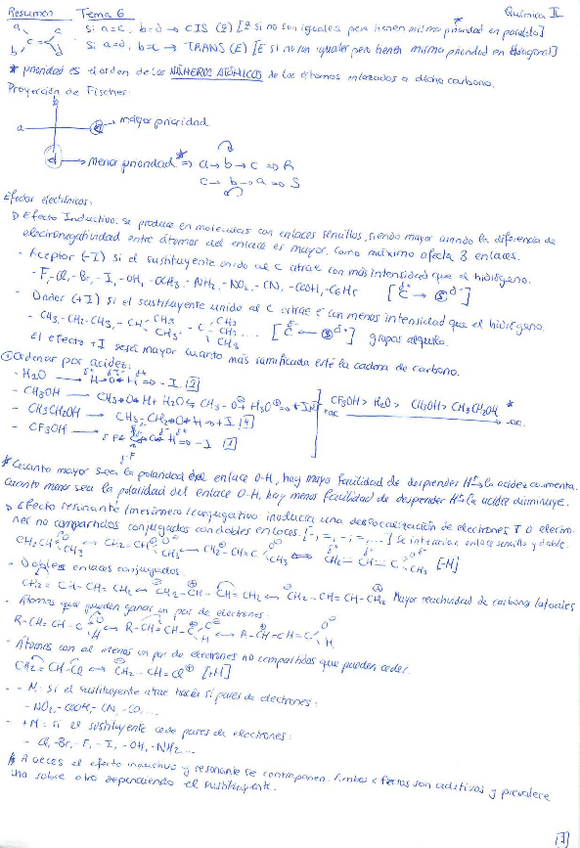 Resumen Tema 6 Química II
a c si a=c, b=d → CIS (Z) [Z si no son iguales pero tienen misma prioridad en paralelo]
b C= d si a=d, b=c → TRANS (E) [E si no son iguales pero tienen misma prioridad en diagonal]
* prioridad es el orden de los NÚMEROS ATÓMICOS de los átomos enlazados a dicho carbono.
Proyección de Fischer:
b
a → mayor prioridad
→ menor prioridad * ⇒ a → b → c ⇒ R
c → b → a ⇒ S
Efectos electrónicos:
▷ Efecto Inductivo: se produce en moléculas con enlaces sencillos, siendo mayor cuando la diferencia de
electronegatividad entre átomos del enlace es mayor. Como máximo afecta 3 enlaces.
- Aceptor (-I) si el sustituyente unido al C atrae con más intensidad que el hidrógeno.
-F, -Cl, -Br, -I, -OH, -OCH3, -NH2, -NO2, -CN, -COOH, -C6H5 [C → S]
- Dador (+I) si el sustituyente unido al C atrae con menos intensidad que el hidrógeno.
-CH3, -CH2-CH3, -CH CH3 CH3, -C CH3 CH3 CH3 ... [C ← S] grupos alquilo.
El efecto +I será mayor cuanto más ramificada esté la cadena de carbono.
① Ordenar por acidez:
- H2O → H-O-H ⇒ -I [2]
- CH3OH → CH3-O-H + H2O ⇆ CH3-O + H3O ⇒ +I [3]
- CH3CH2OH → CH3-CH2-O-H ⇒ +I [4]
- CF3OH → F-C-O-H ⇒ -I [1]
CF3OH > H2O > CH3OH > CH3CH2OH *
* Cuanto mayor sea la polaridad del enlace O-H, hay mayor facilidad de desprender H+: la acidez aumenta.
Cuanto menor sea la polaridad del enlace O-H, hay menos facilidad de desprender H+: la acidez disminuye.
▷ Efecto resonante/mesómero/conjugativo: involucra una deslocalización de electrones π o electro-
nes no compartidos conjugados con dobles enlaces. [-, =, -, =, ...] Se intercalan enlace sencillo y doble.
[-M]
- Dobles enlaces conjugados:
CH2=CH-CH=CH2 ↔ CH2-CH-CH=CH2 ↔ CH2-CH=CH-CH2 Mayor reactividad de carbonos laterales
- Átomos que pueden ganar un par de electrones:
R-CH=CH-C O H ↔ R-CH=CH-C O H ↔ R-CH-CH=C O H
- Átomos con al menos un par de electrones no compartidos que pueden ceder.
CH2=CH-Cl ↔ CH2-CH=Cl [+M]
- -M: si el sustituyente atrae hacia sí pares de electrones:
-NO2, -COOH, -CN, -CO, ...
- +M: si el sustituyente cede pares de electrones:
-Cl, -Br, -F, -I, -OH, -NH2 ...
A veces el efecto inductivo y resonante se contraponen. Ambos efectos son aditivos y prevalece
uno sobre otro dependiendo el sustituyente.
[7]